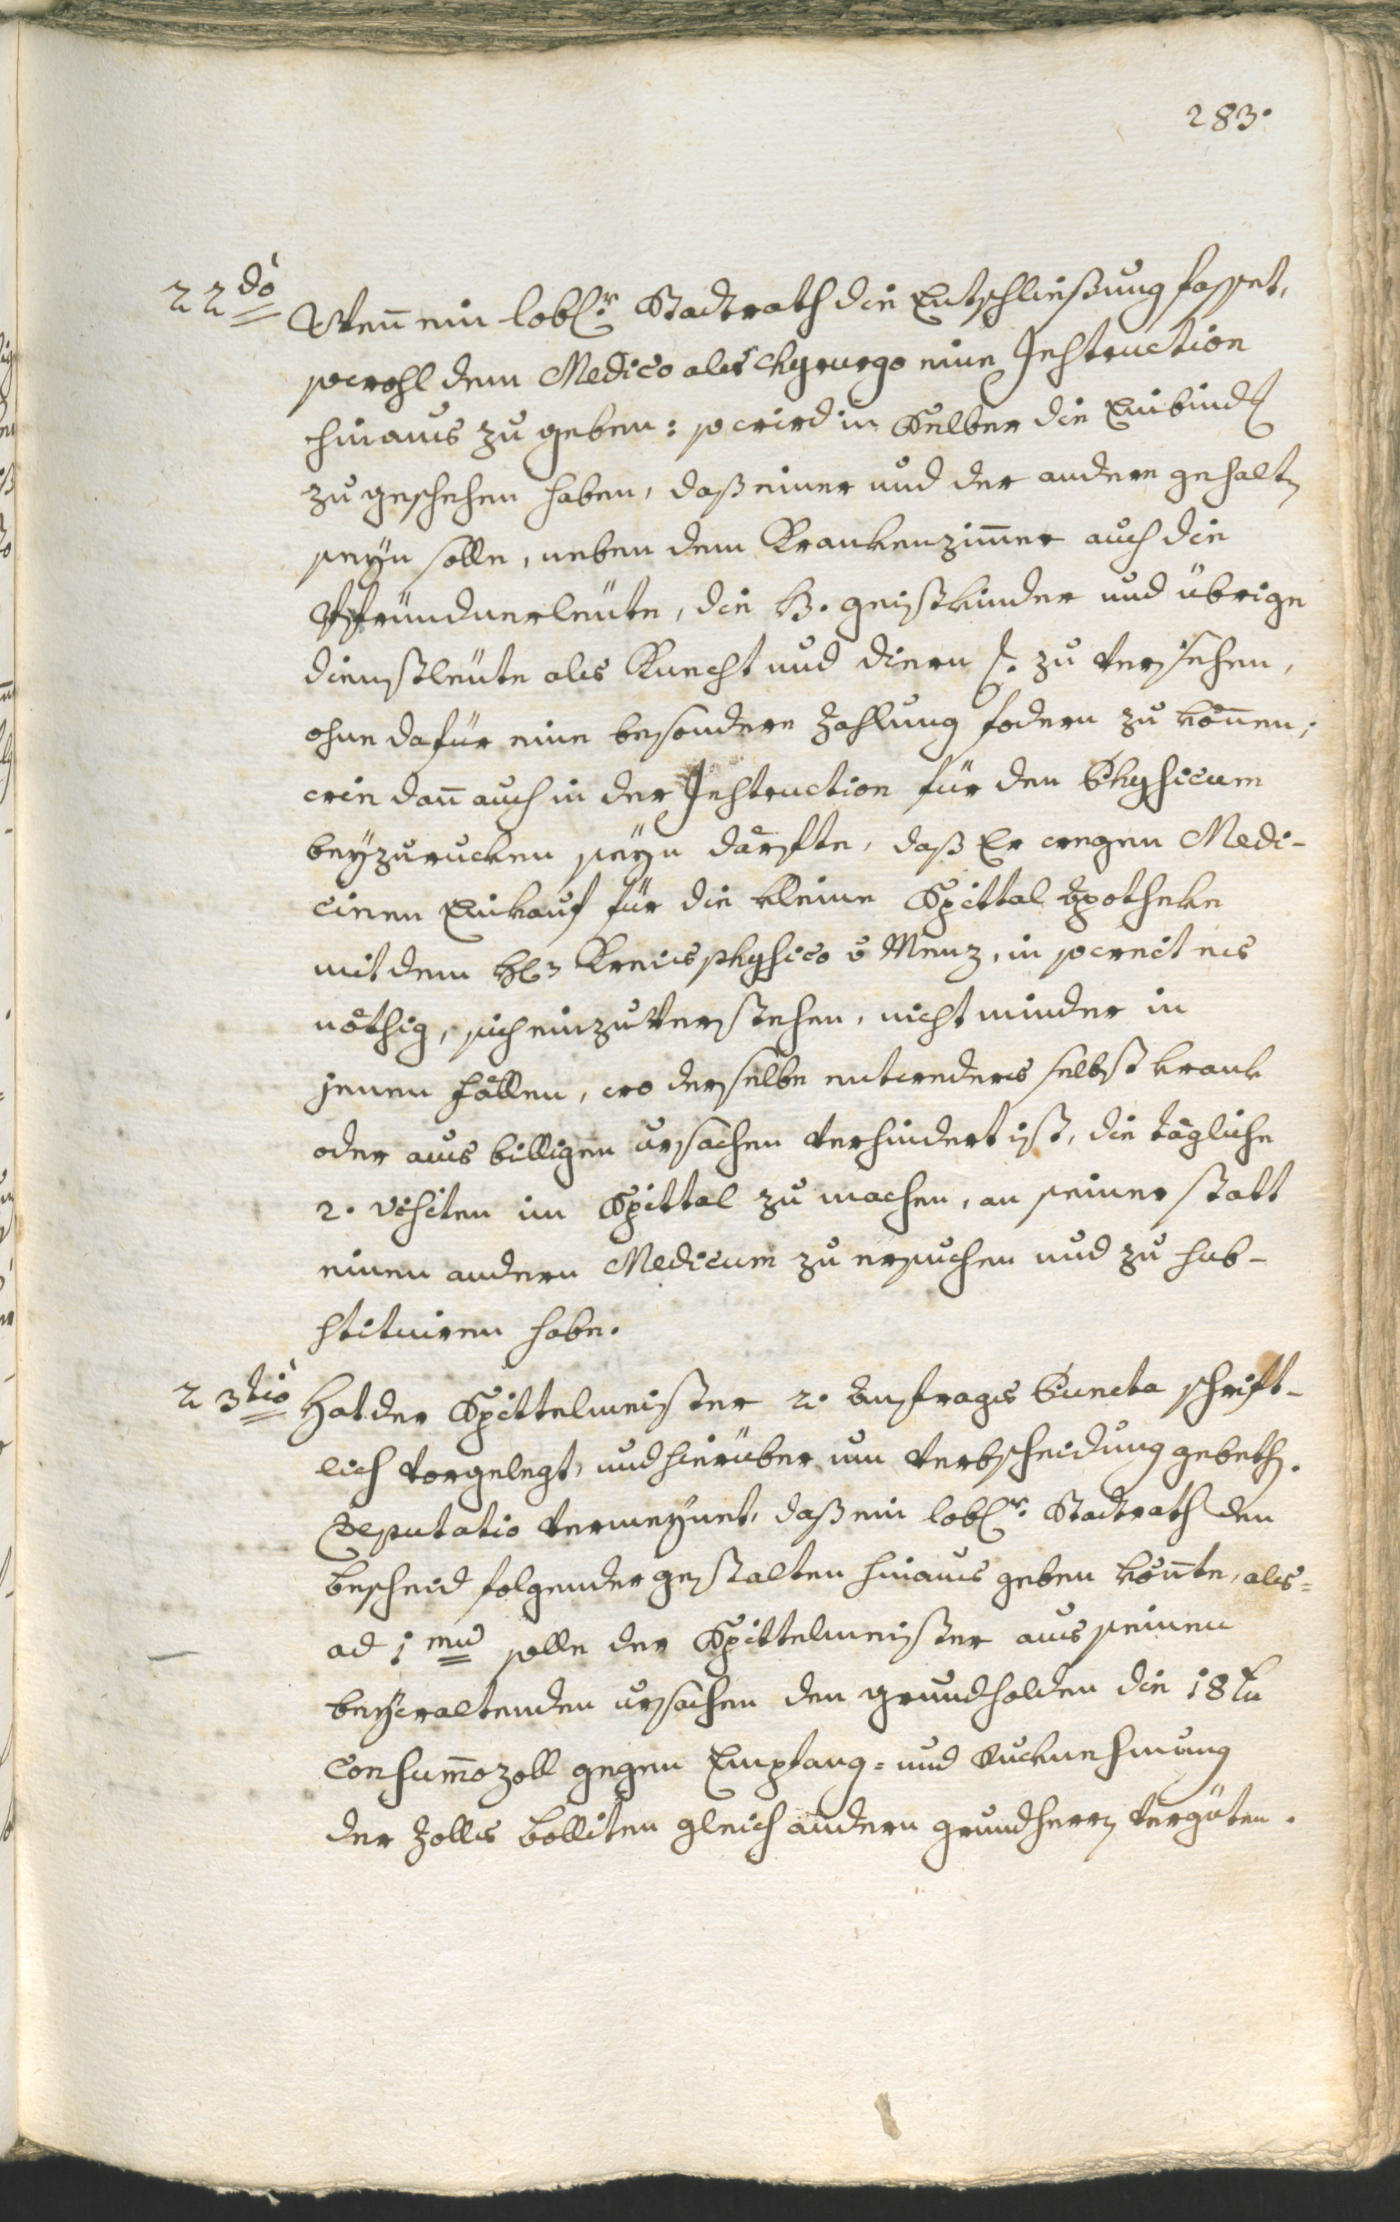 283.
22do Wenn ein lobl.r Stadtrath die Entschließung fasset,
sowohl dem Medico als Chyrurgo eine Instruction
hinaus zu geben: so wird in Selber die Einbind[ung]
zu geschehen haben, daß einer und der andere gehalten
seyn solle, neben dem Krankenzimmer auch die
Pfründnerleüte, die H. geistkinder und übrige
dienstleüte als Knecht und diern zu versehen,
ohne dafür eine besondere Zahlung fodern zu können;
wie dann auch in der Instruction für den Physicum
beyzurucken seyn därfte, daß Er wegen Medi-
cinen Einkauf für die kleine Spittal Apotheke
mit dem H: Kreisphysico v Menz, in soweit es
nöthig, sich einzuverstehen, nicht minder in
jenen fällen, wo derselbe entweders selbst krank
oder aus billigen ursachen verhindert ist, die tägliche
2. visiten im Spittal zu machen, an seiner statt
einen andern Medicum zu ersuchen und zu sub-
stituiren habe.
23tio Hat der Spittelmeister 2. Anfrags Puncta schrift-
lich vorgelegt, und hierüber um verbscheidung gebethen.
Deputatio vermeynet, daß ein lobl.r Stadtrath den
bescheid folgendergestalten hinaus geben könnte, als=
ad 1mu solle der Spittelmeister aus seinen
beywaltenden ursachen den grundholden die 18 kr
Consummozoll gegen Empfang= und Rucknehmung
der Zolls Bolliten gleich andern grundherrn vergüten.